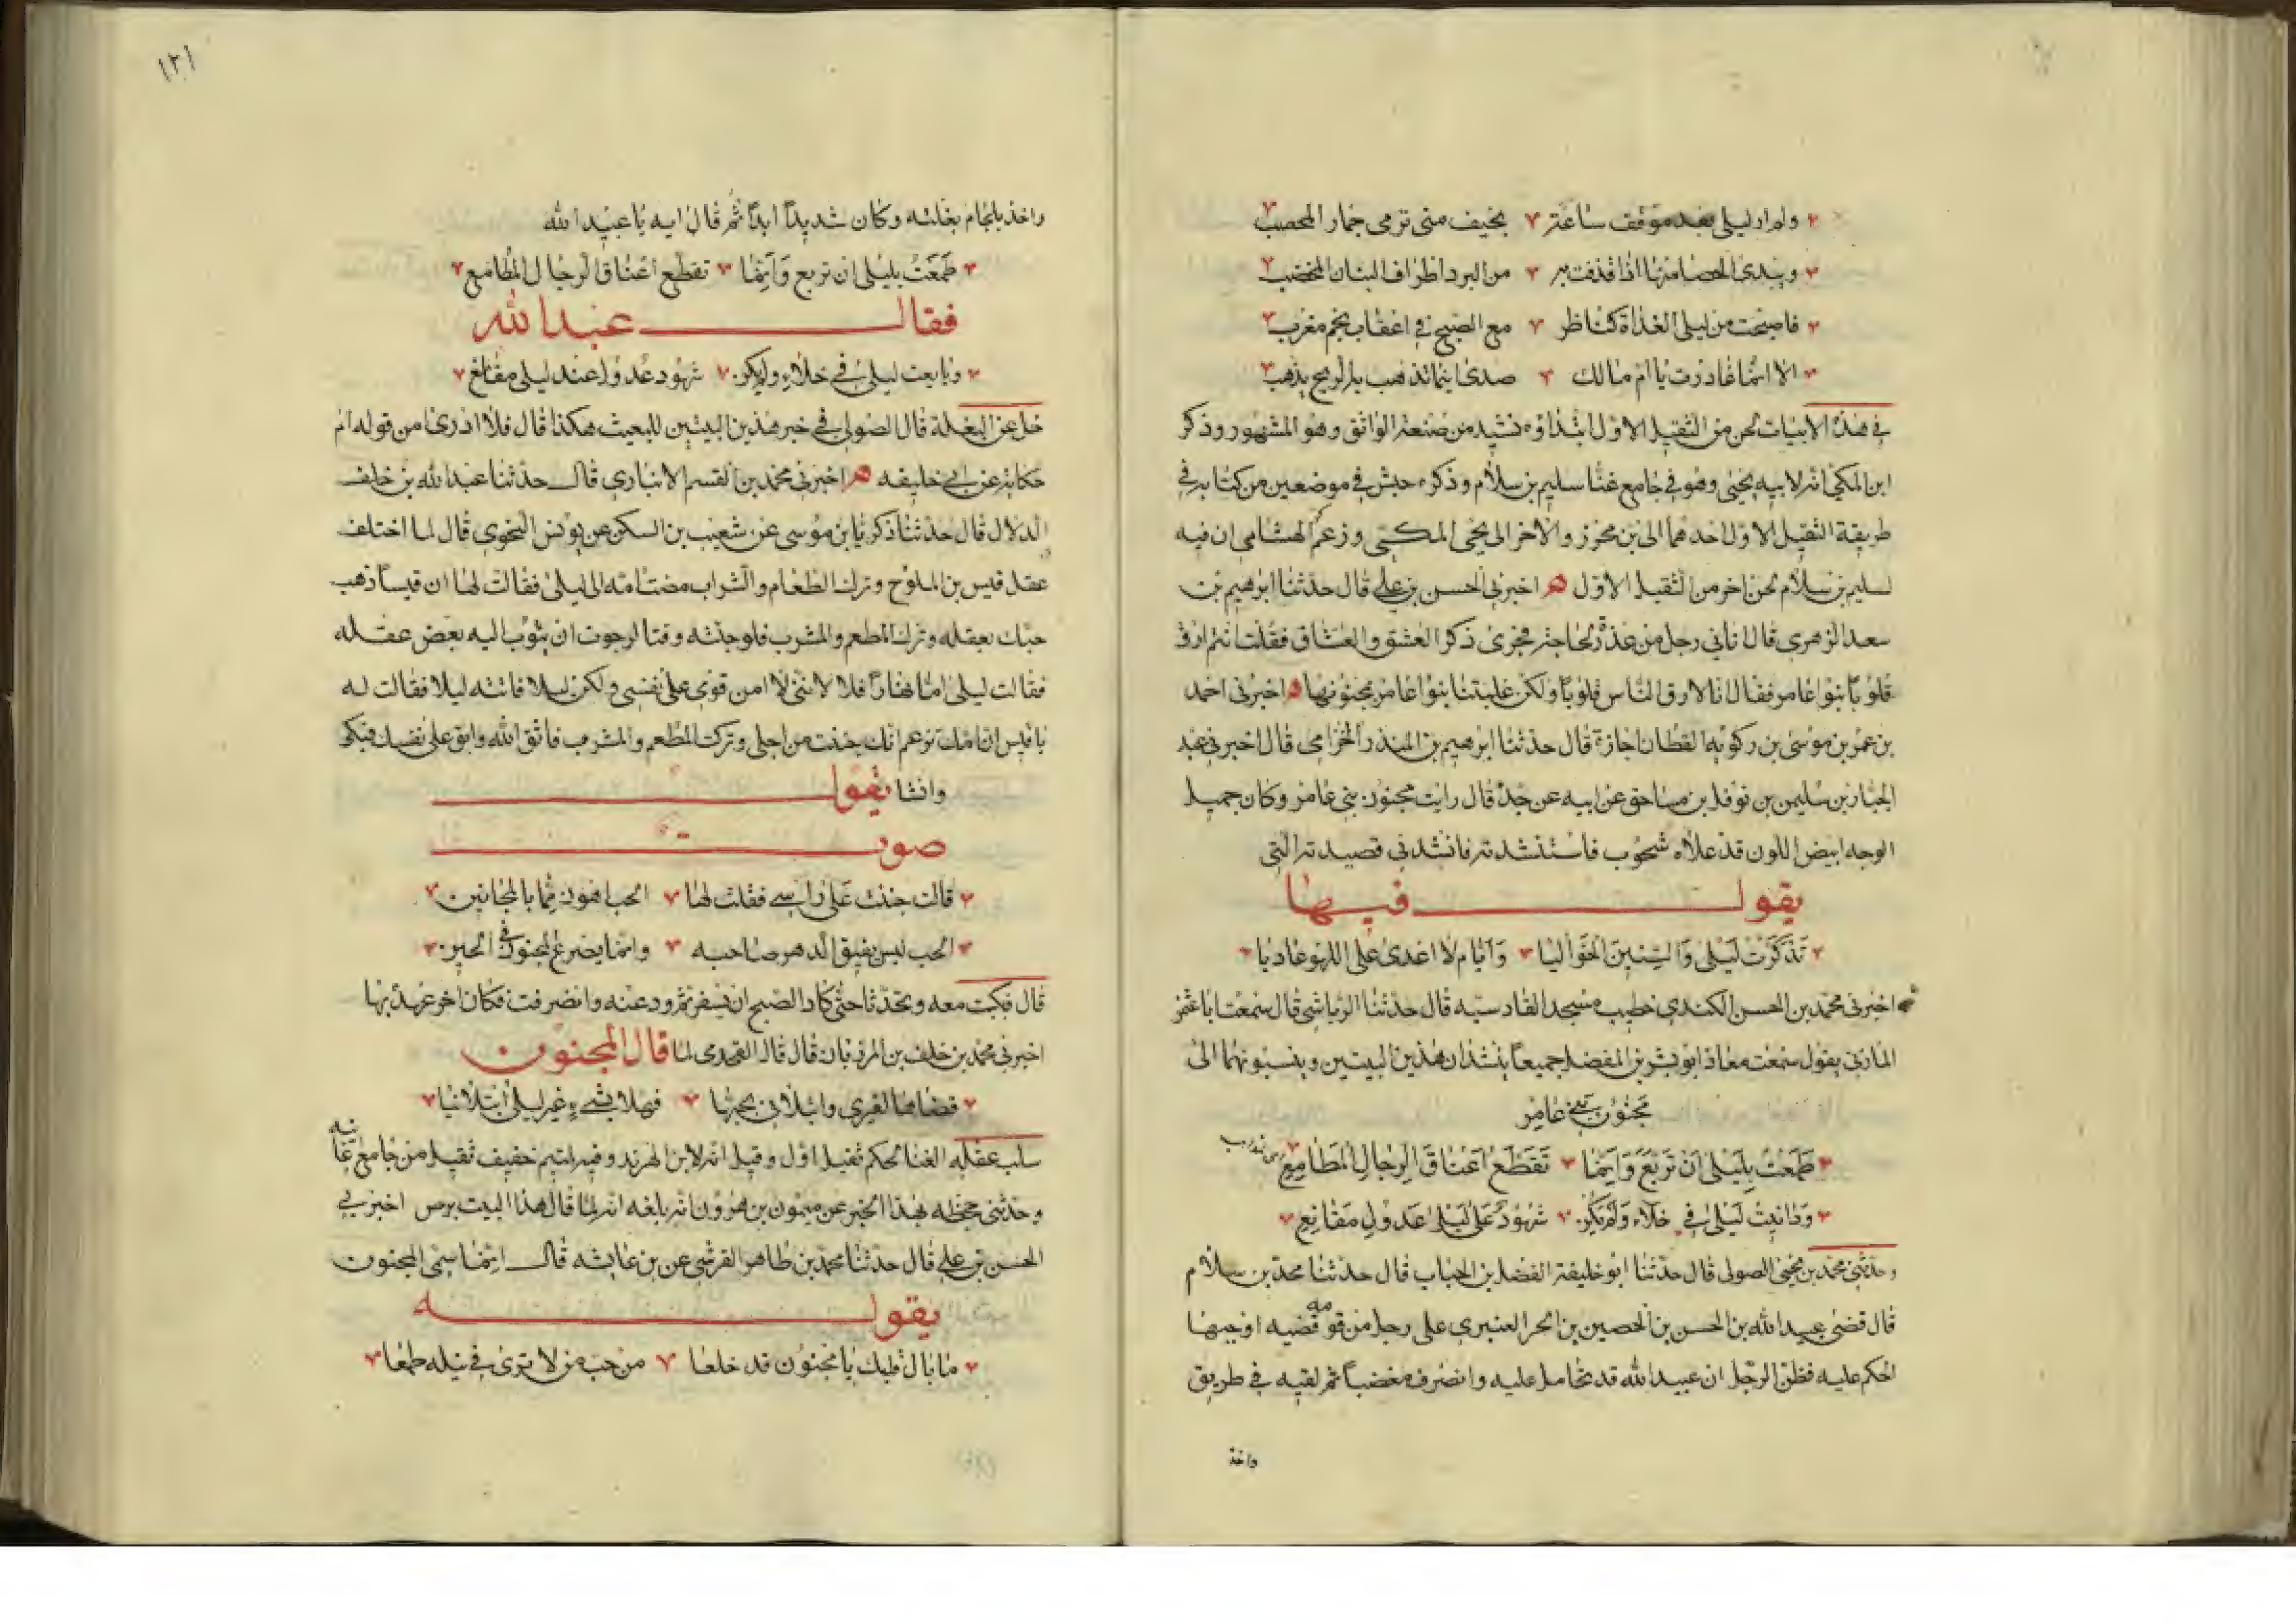 ولم ار ليلى بعد موقف ساعة بخيف منى ترمى جمار المحصب
ويبدى الحصا منها اذا قذفت به من البرد اطراف البنان المخضب
فاصبحت من ليلى الغداة كناظر مع الصبح في اعقاب نجم مغرب
الا انما غادرت يا ام مالك صدى اينما تذهب به الريح يذهب
في هذه الابيات لحن من الثقيل الاول ابتداؤه نشيد من صنعة الواثق وهو المشهور وذكر
ابن المكي انه لابيه يحيى وهو في جامع غنا سليم بن سلام وذكره حبش في موضعين من كتابه في
طريقة الثقيل الاول احدهما الى بن محرز والاخر الى يحيى المكي وزعم الهشامي ان فيه
لسليم بن سلام لحن اخر من الثقيل الاول اخبرني الحسن بن علي قال حدثنا ابرهيم بن
سعد الزهري قال اتاني رجل من عذرة لحاجة فجرى ذكر العشق والعشاق فقلت انتم ارق
قلوبا ام بنوا عامر فقال انا لارق الناس قلوبا ولكن غلبتنا بنوا عامر بمجنونها اخبرني احمد
بن عمر بن موسى بن زكويه القطان اجازة قال حدثنا ابرهيم بن المنذر الخزامي قال اخبرني عبد
الجبار بن سليمن بن نوفل بن مساحق عن ابيه عن جده قال رايت مجنون بني عامر وكان جميل
الوجه ابيض اللون قد علاه شحوب فاستنشدته فانشدني قصيدته التي
يقول فيها
تذكرت ليلى والسنين الخواليا وايام لا اعدى على اللهو عاديا
اخبرني محمد بن الحسن الكندي خطيب مسجد القادسية قال حدثنا الرياشي قال سمعت ابا عثمن
المازني يقول سمعت معاذا ابو بشر بن المفضل جميعا ينشدان هذين البيتين وينسبونهما الى
مجنون بني عامر
طمعت بليلى ان تريع وانما تقطع اعناق الرجال المطامع
ودانيت ليلى في خلاء ولم يكن شهود على ليلى عدول مقانع
وحدثني محمد بن يحيى الصولي قال حدثنا ابو خليفة الفضل بن الحباب قال حدثنا محمد بن سلام
قال قضى عبيد الله بن الحسن بن الحصين بن الحر العنبري على رجل من قومه قضيه اوجبها
الحكم عليه فظن الرجل ان عبيد الله قد تحامل عليه وانصرف مغضبا ثم لقيه في طريق
واخذ
١٢١
واخذ بلجام بغلته وكان شديدا ابدا ثم قال ايه يا عبيد الله
طمعت بليلى ان تريع وانما تقطع اعناق الرجال المطامع
فقال عبد الله
وبايعت ليلى في خلاء ولم يكن شهود عدول عند ليلى مقانع
خل عن البغلة قال الصولي في خبر هذين البيتين للبعيث هكذا قال فلا ادري امن قوله ام
حكاية عن ابي خليفه اخبرني محمد بن القسم الانباري قال حدثنا عبد الله بن خلف
الدلال قال حدثنا زكريا بن موسى عن شعيب بن السكن عن يونس النحوي قال لما اختلط
عقل قيس بن الملوح وترك الطعام والشراب مضت امه الى ليلى فقالت لها ان قيسا ذهب
حبك بعقله وترك المطعم والمشرب فلو جئته وقتا لرجوت ان يثوب اليه بعض عقله
فقالت ليلى اما نهارا فلا لانني لا امن قومى على نفسي ولكن ليلا فاتته ليلا فقالت له
يا قيس ان امك تزعم انك جننت من اجلي وتركت المطعم والمشرب فاتق الله وابق على نفسك فبكى
وانشا يقول
صوت
قالت جننت على راسي فقلت لها الحب اهون مما بالمجانين
الحب ليس يفيق الدهر صاحبه وانما يصرع المجنون في الحين
قال فبكت معه وتحدثا حتى كاد الصبح ان يسفر ثم ودعته وانصرفت فكان اخر عهده بها
اخبرني محمد بن خلف بن المرزبان قال قال القحدمى لما قال المجنون
قضاها لغيري وابتلاني بحبها فهلا بشيء غير ليلى ابتلانيا
سلب عقله الغنا لحكم ثقيل اول وقيل انه لابن الهربذ وفيه لمتيم خفيف ثقيل من جامع غنائه
وحدثني جحظه بهذا الخبر عن ميمون بن هرون انه بلغه انه لما قال هذا البيت برص اخبرني
الحسن بن علي قال حدثنا محمد بن طاهر القرشي عن بن عايشه قال انما سمى المجنون
يقوله
ما بال قلبك يا مجنون قد خلعا من حب من لا ترى في نيله طمعا